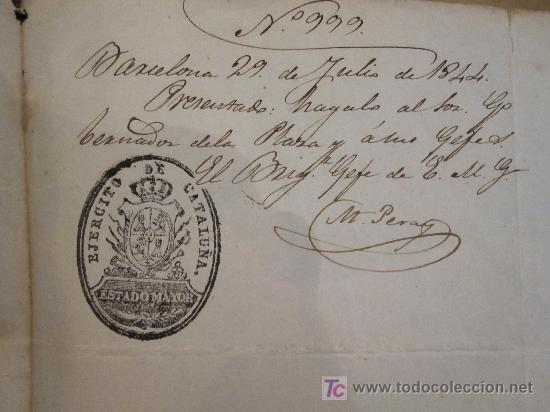 N.º 999.
Barcelona 29. de Julio de 1844.
Presentado: hagalo al Sor. Go
bernador de la Plaza y á mi Gefe.
El Brig.r Gefe de E. M. G.
M. Peray
EJERCITO DE CATALUÑA.
ESTADO MAYOR
TC www.todocoleccion.net